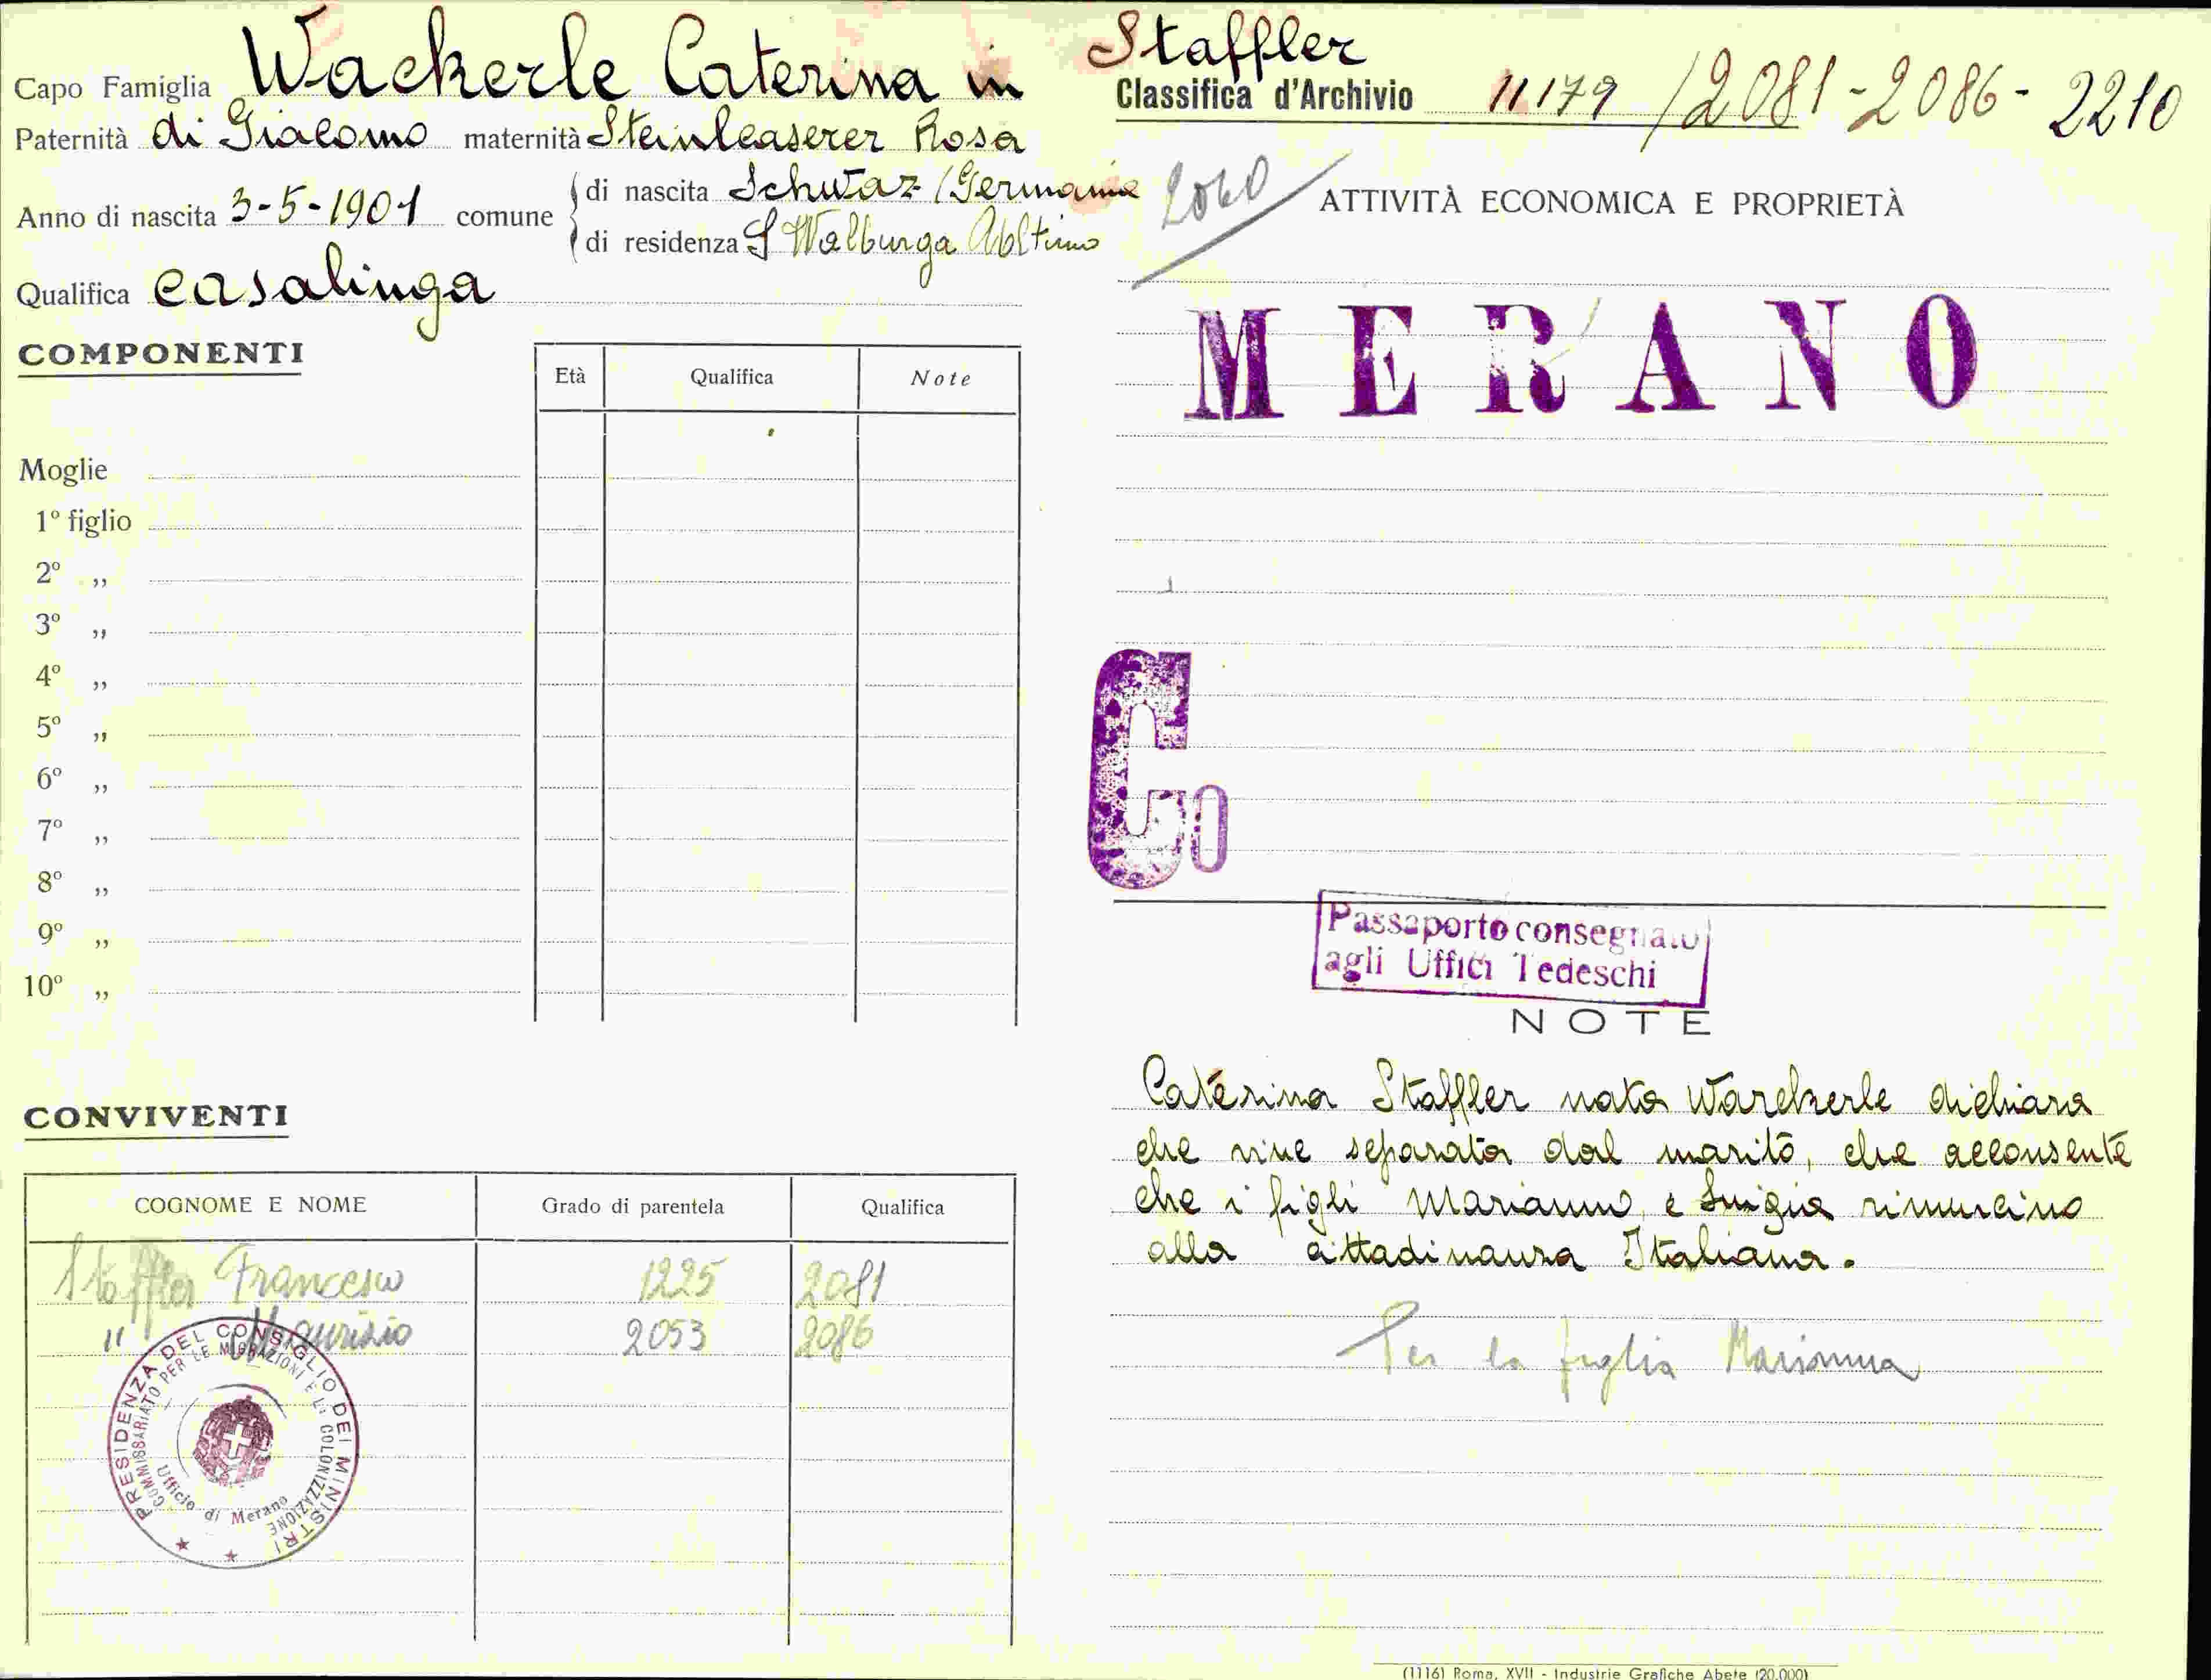 Capo Famiglia Wackerle Caterina in Staffler
Paternità di Giacomo maternità Rosa
Anno di nascita 3-5-1901 comune
di nascita Schwaz (Germania
di residenza S Walburga
Qualifica casalinga
COMPONENTI
Età Qualifica Note
Moglie
1º figlio
2º „
3º „
4º „
5º „
6º „
7º „
8º „
9º „
10º „
CONVIVENTI
COGNOME E NOME Grado di parentela Qualifica
Staffler Francesco 1225 2081
" Maurizio 2053 2086
PRESIDENZA DEL CONSIGLIO DEI MINISTRI
COMMISSARIATO PER LE MIGRAZIONI E LA COLONIZZAZIONE
Ufficio di Merano
Classifica d'Archivio 11179 /2081-2086-2210
2060
ATTIVITÀ ECONOMICA E PROPRIETÀ
MERANO
Co
Passaporto consegnato
agli Uffici Tedeschi
NOTE
Caterina Staffler nata Warckerle dichiara
che vive separata dal marito, che acconsente
che i figli Marianno e Luigia rinuncino
alla cittadinanza Italiana.
Per la figlia Marianna
(1116) Roma, XVII - Industrie Grafiche Abete (20.000)